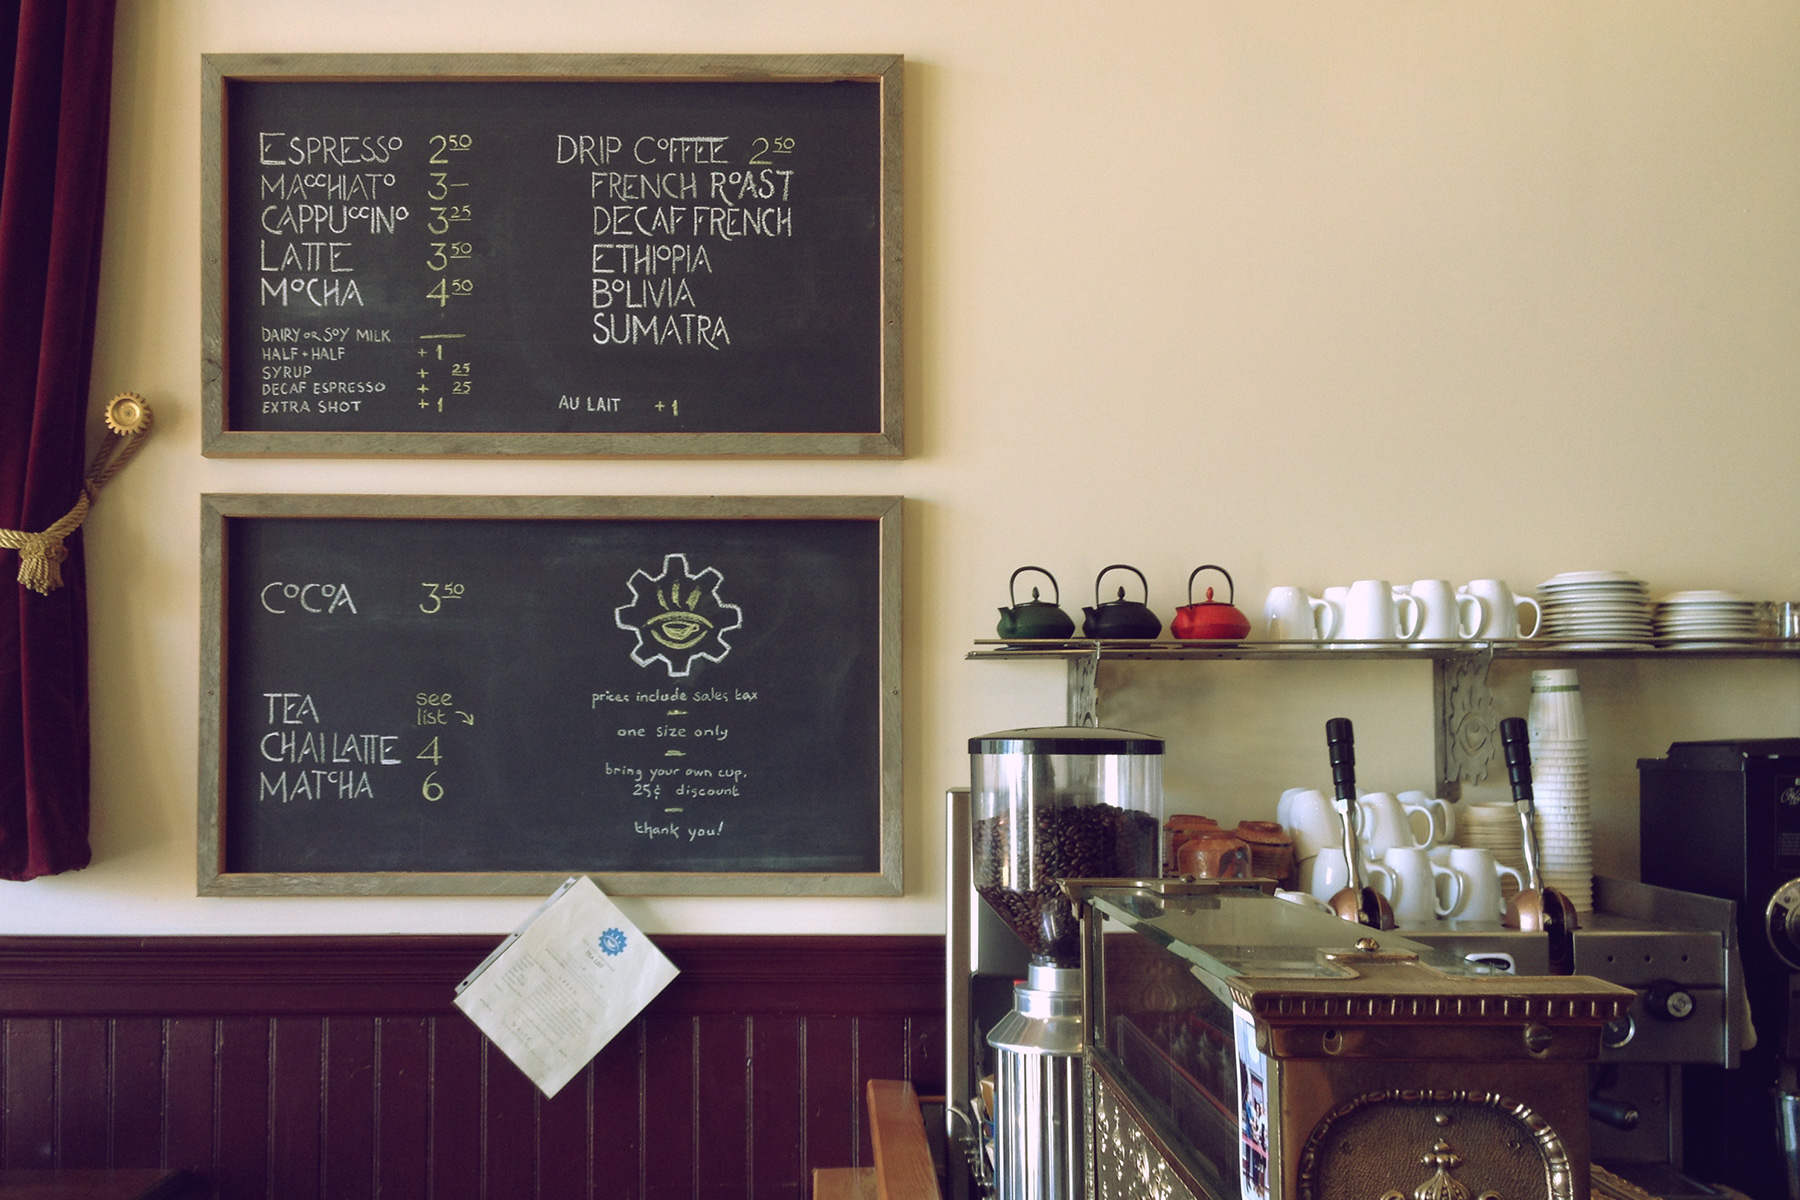 ESPRESSO 2 50
MACCHIATO 3–
CAPPUCCINO 3 25
LATTE 3 50
MOCHA 4 50
DAIRY OR SOY MILK —
HALF + HALF + 1
SYRUP + 25
DECAF ESPRESSO + 25
EXTRA SHOT + 1
DRIP COFFEE 2 50
FRENCH ROAST
DECAF FRENCH
ETHIOPIA
BOLIVIA
SUMATRA
AU LAIT + 1
COCOA 3 50
TEA see list
CHAI LATTE 4
MATCHA 6
prices include sales tax
one size only
bring your own cup,
25¢ discount
thank you!
TEA LIST